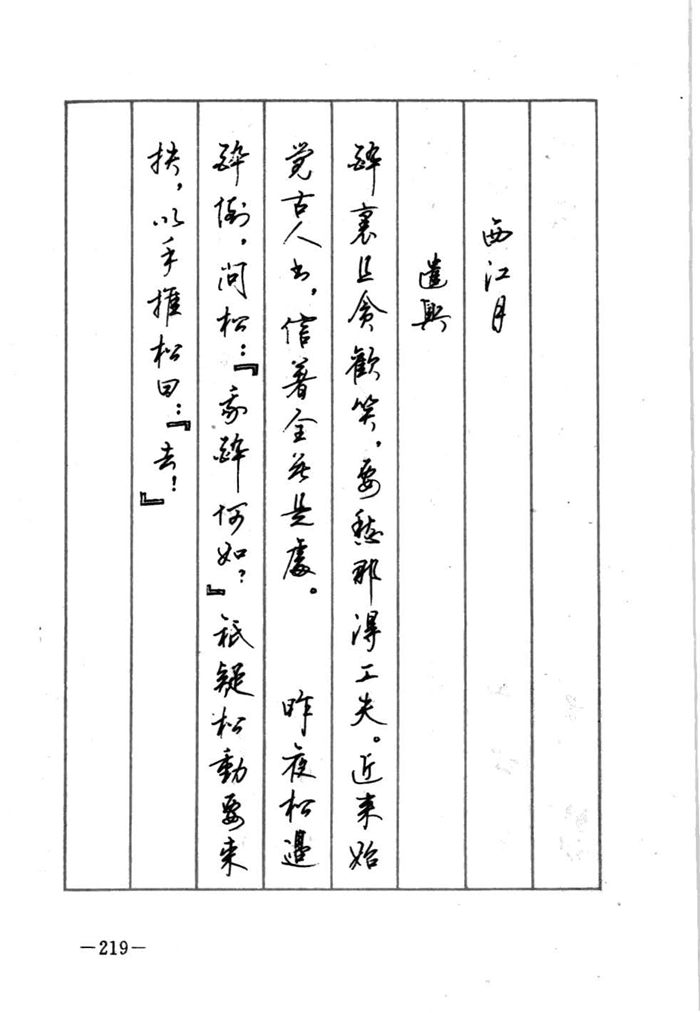 西江月
遣興
醉裏且貪歡笑，要愁那得工夫。近来始
觉古人书，信著全無是處。　昨夜松邊
醉倒，问松：『我醉何如？』祇疑松動要来
扶，以手推松曰：『去！』
—219—